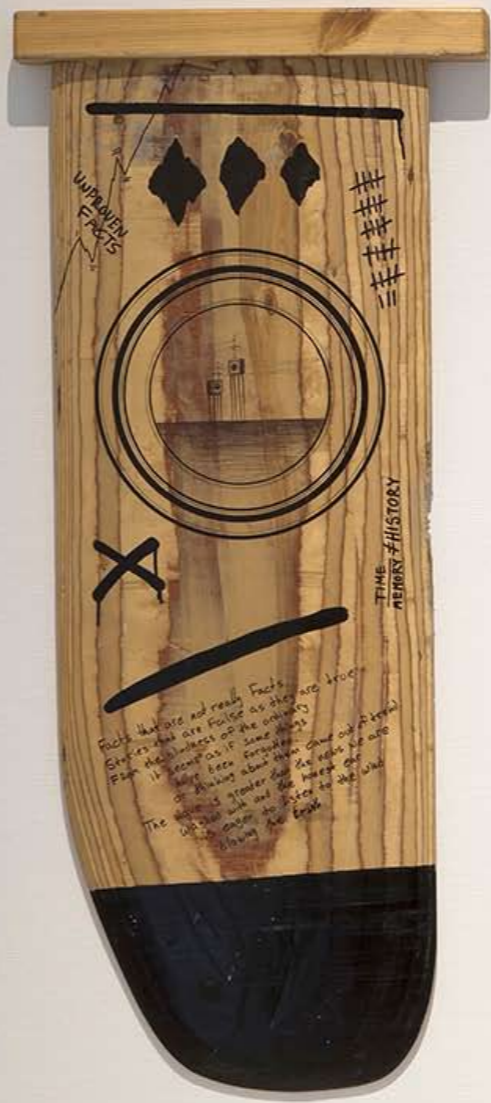 UNPROVEN
FACTS
TIME
MEMORY ≠ HISTORY
Facts that are not really Facts
Stories that are False as they are true
From the blindness of the ordinary
it seems as if some things
have been forgotten
or thinking about them came out of
The is greater than the news we are
with and the honest ear
is eager to listen to the wind
blowing the